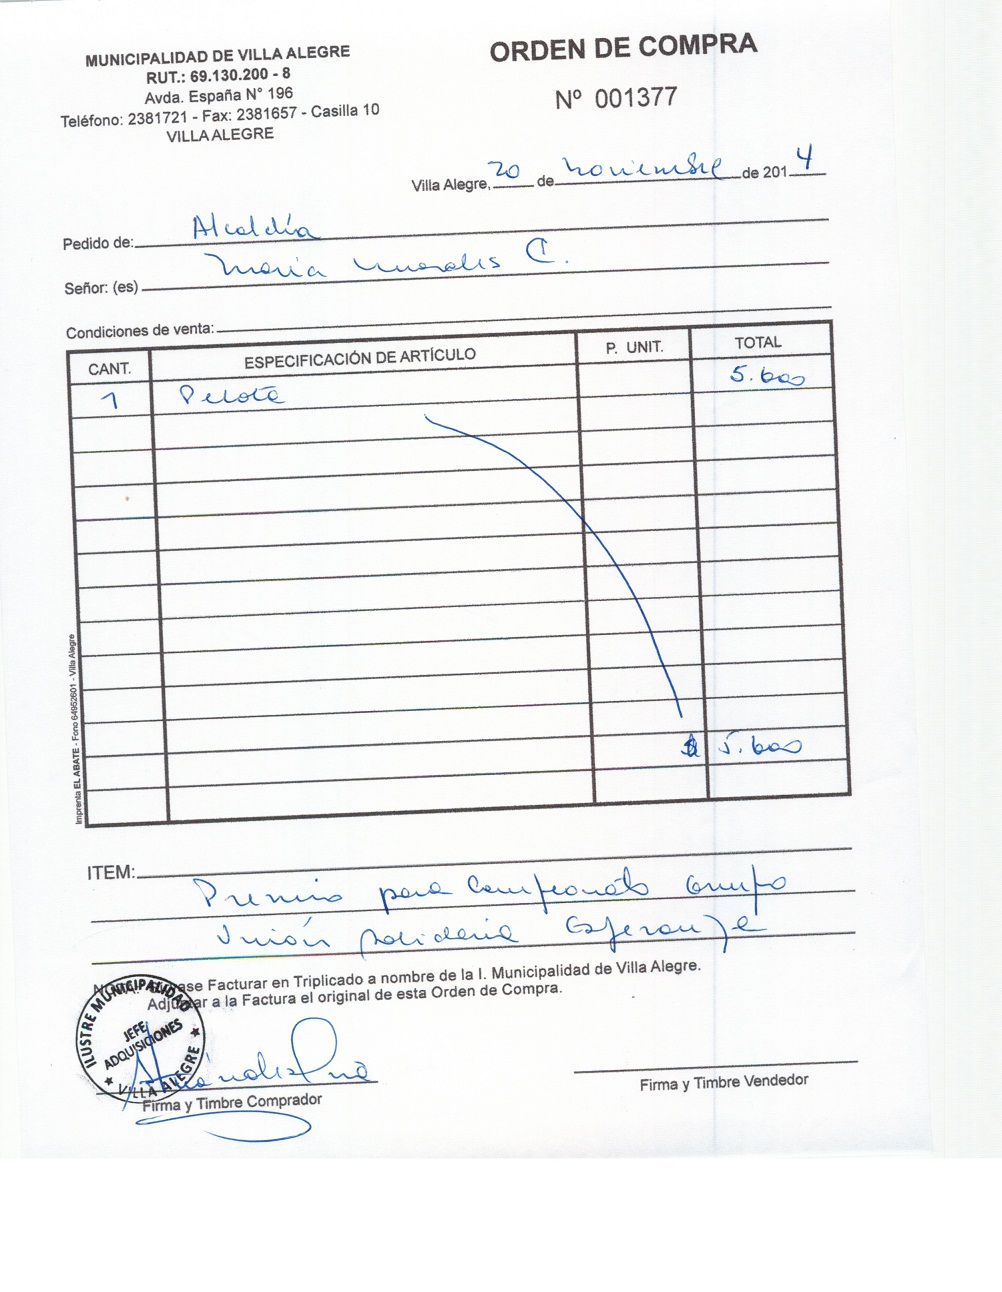 MUNICIPALIDAD DE VILLA ALEGRE
RUT.: 69.130.200 - 8
Avda. España N° 196
Teléfono: 2381721 - Fax: 2381657 - Casilla 10
VILLA ALEGRE
ORDEN DE COMPRA
Nº 001377
Villa Alegre, 20 de noviembre de 2014
Pedido de: Alcaldía
Señor: (es) Maria Morales C.
Condiciones de venta:
CANT. ESPECIFICACIÓN DE ARTÍCULO P. UNIT. TOTAL
1 Pelota 5.600
$ 5.600
Imprenta EL ABATE - Fono 64952601 - Villa Alegre
ITEM:
Premio para Campeonato Grupo
Unión solidaria Esperanza
ase Facturar en Triplicado a nombre de la I. Municipalidad de Villa Alegre.
Adjuntar a la Factura el original de esta Orden de Compra.
ILUSTRE MUNICIPALIDAD
JEFE
ADQUISICIONES
VILLA ALEGRE
Firma y Timbre Comprador
Firma y Timbre Vendedor